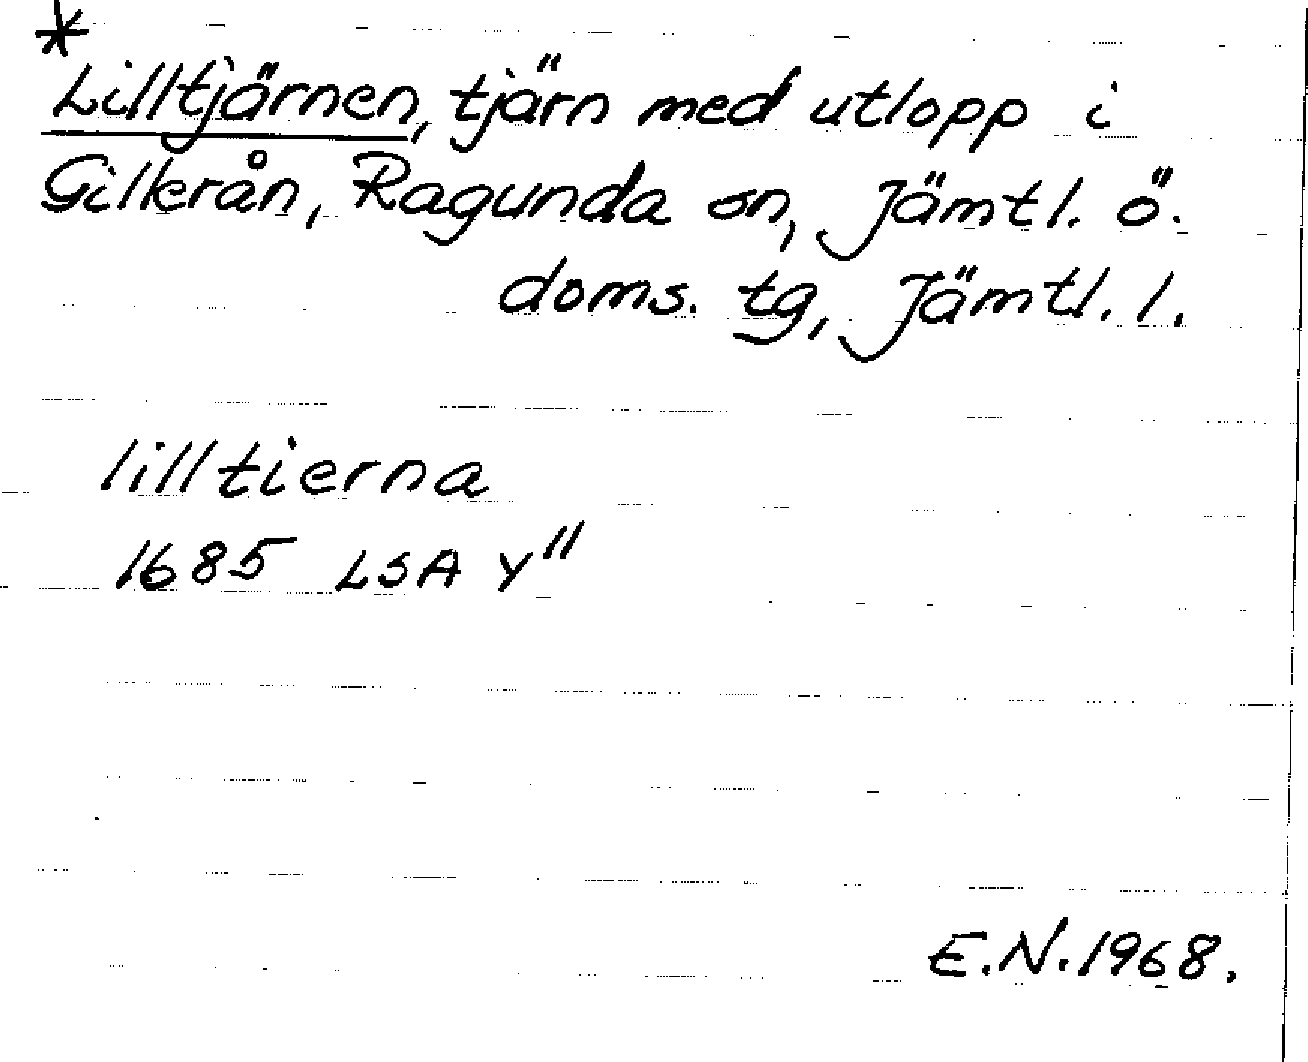 *
Lilltjärnen, tjärn med utlopp i
Gilkrån, Ragunda sn, Jämtl. ö.
doms. tg, Jämtl. l.
lilltierna
1685 LSA Y"
E.N. 1968.